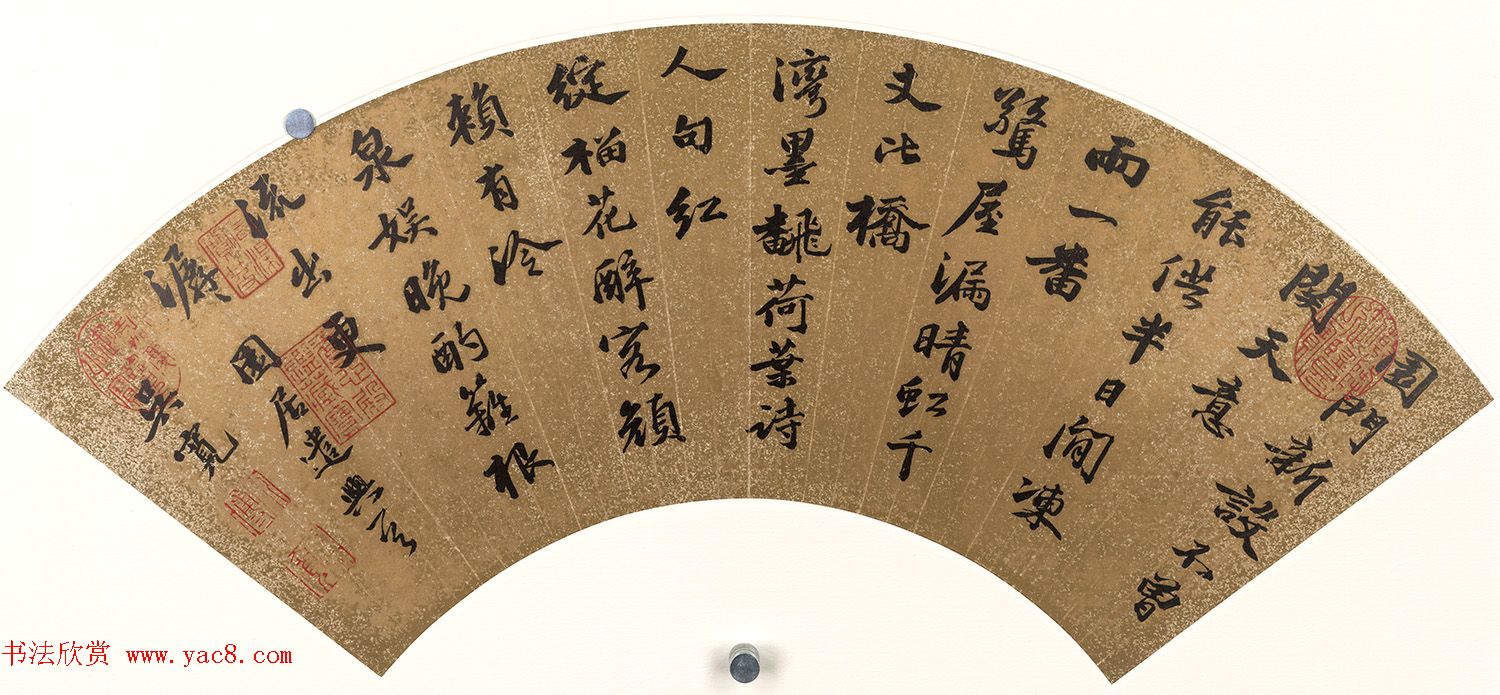 園門新設不曾
關天意
能供半日閒凍
雨一番
驚屋漏晴虹千
丈比橋
灣墨飜荷葉詩
人句紅
綻榴花醉客顏
賴有冷
泉娛晚酌籬根
流出更
潺園居遣興
吳寬
书法欣赏 www.yac8.com